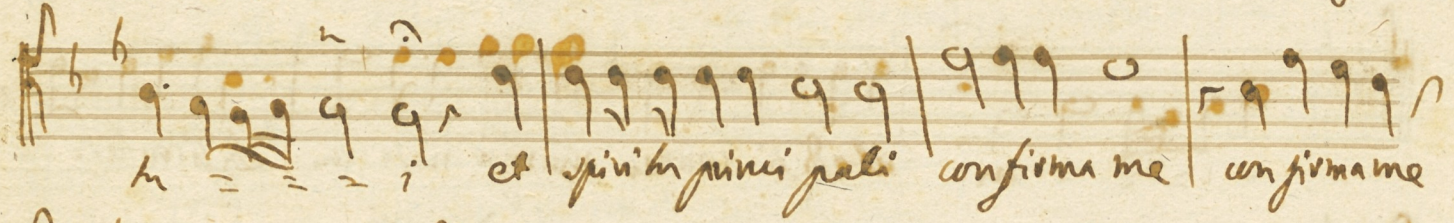 tu = = = i et spiritu principali confirma me confirma me